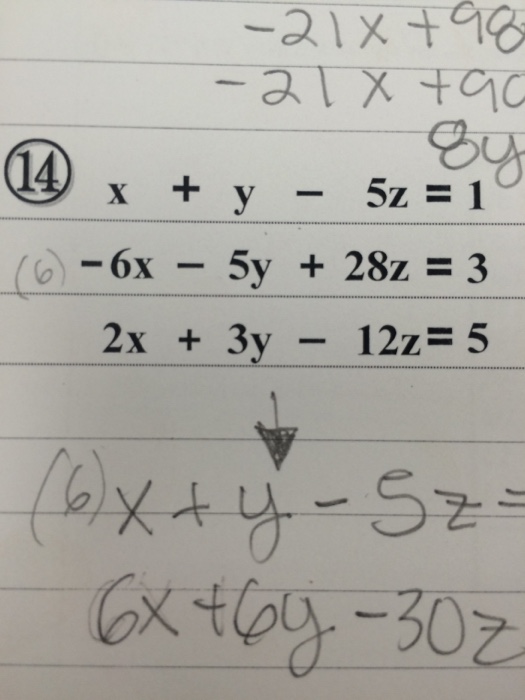 -21x + 98
-21x + 90
8y
14 x + y - 5z = 1
(6) -6x - 5y + 28z = 3
2x + 3y - 12z = 5
(6) x + y - 5z =
6x + 6y - 30z